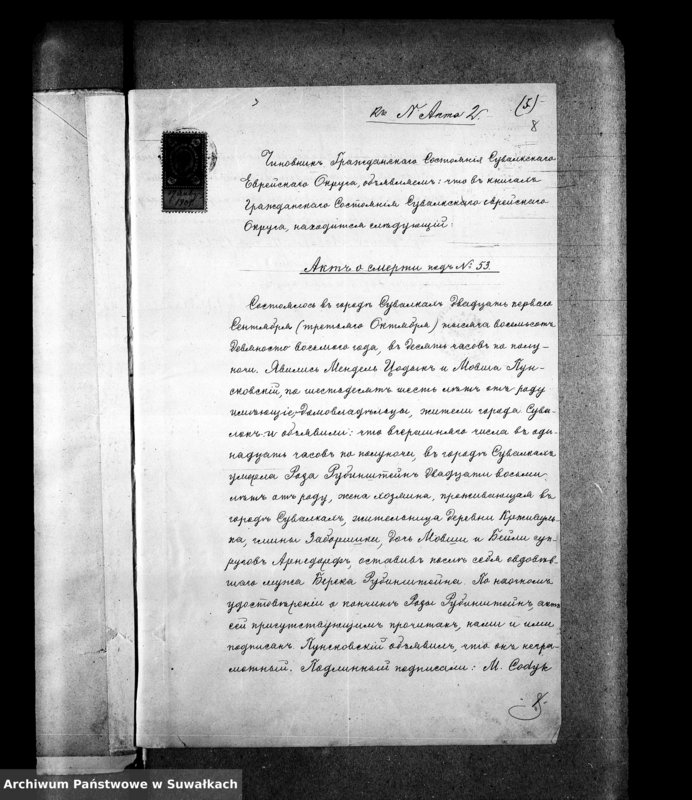 къ N Акта 2.
(5)
8
Чиновникъ Гражданскаго Состоянія Сувалкскаго
Еврейскаго Округа, объявляемъ: что въ книгахъ
Гражданскаго Состоянія Сувалкскаго еврейскаго
Округа, находится слѣдующій:
Актъ о смерти подъ № 53.
Состоялось въ городѣ Сувалкахъ двадцать перваго
Сентября (третьяго Октября) тысяча восемьсотъ
девяносто восьмого года, въ десять часовъ по полу-
ночи. Явились Мендель Цодыкъ и Мовша Кун-
сковскій, по шестьдесятъ шесть лѣтъ отъ роду
имѣющіе, домовладѣльцы, жители города Сува-
локъ и объявили: что вчерашняго числа въ оди-
надцать часовъ по полуночи, въ городѣ Сувалкахъ
умерла Рода Рубинштейнъ двадцати восьми
лѣтъ отъ роду, жена хозяина, проживающая въ
городѣ Сувалкахъ, жительница деревни Крживуль-
ка, гмины Заборишки, дочь Мовши и Бейли суп-
руговъ Арнсдорфъ, оставивъ послѣ себя овдовѣв-
шаго мужа Берека Рубинштейна. По наочномъ
удостовѣреніи о кончинѣ Роды Рубинштейнъ, актъ
сей присутствующимъ прочитанъ, нами и ими
подписанъ. Кунсковскій объявилъ, что онъ негра-
мотный. Подлинный подписали: M. Codyk
8.
Archiwum Państwowe w Suwałkach